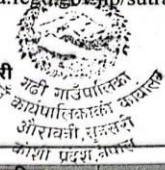 री
गढी गाउँपालिका
कार्यपालिकाको कार्यालय
औराबनी, सुनसरी
कोशी प्रदेश, नेपाल